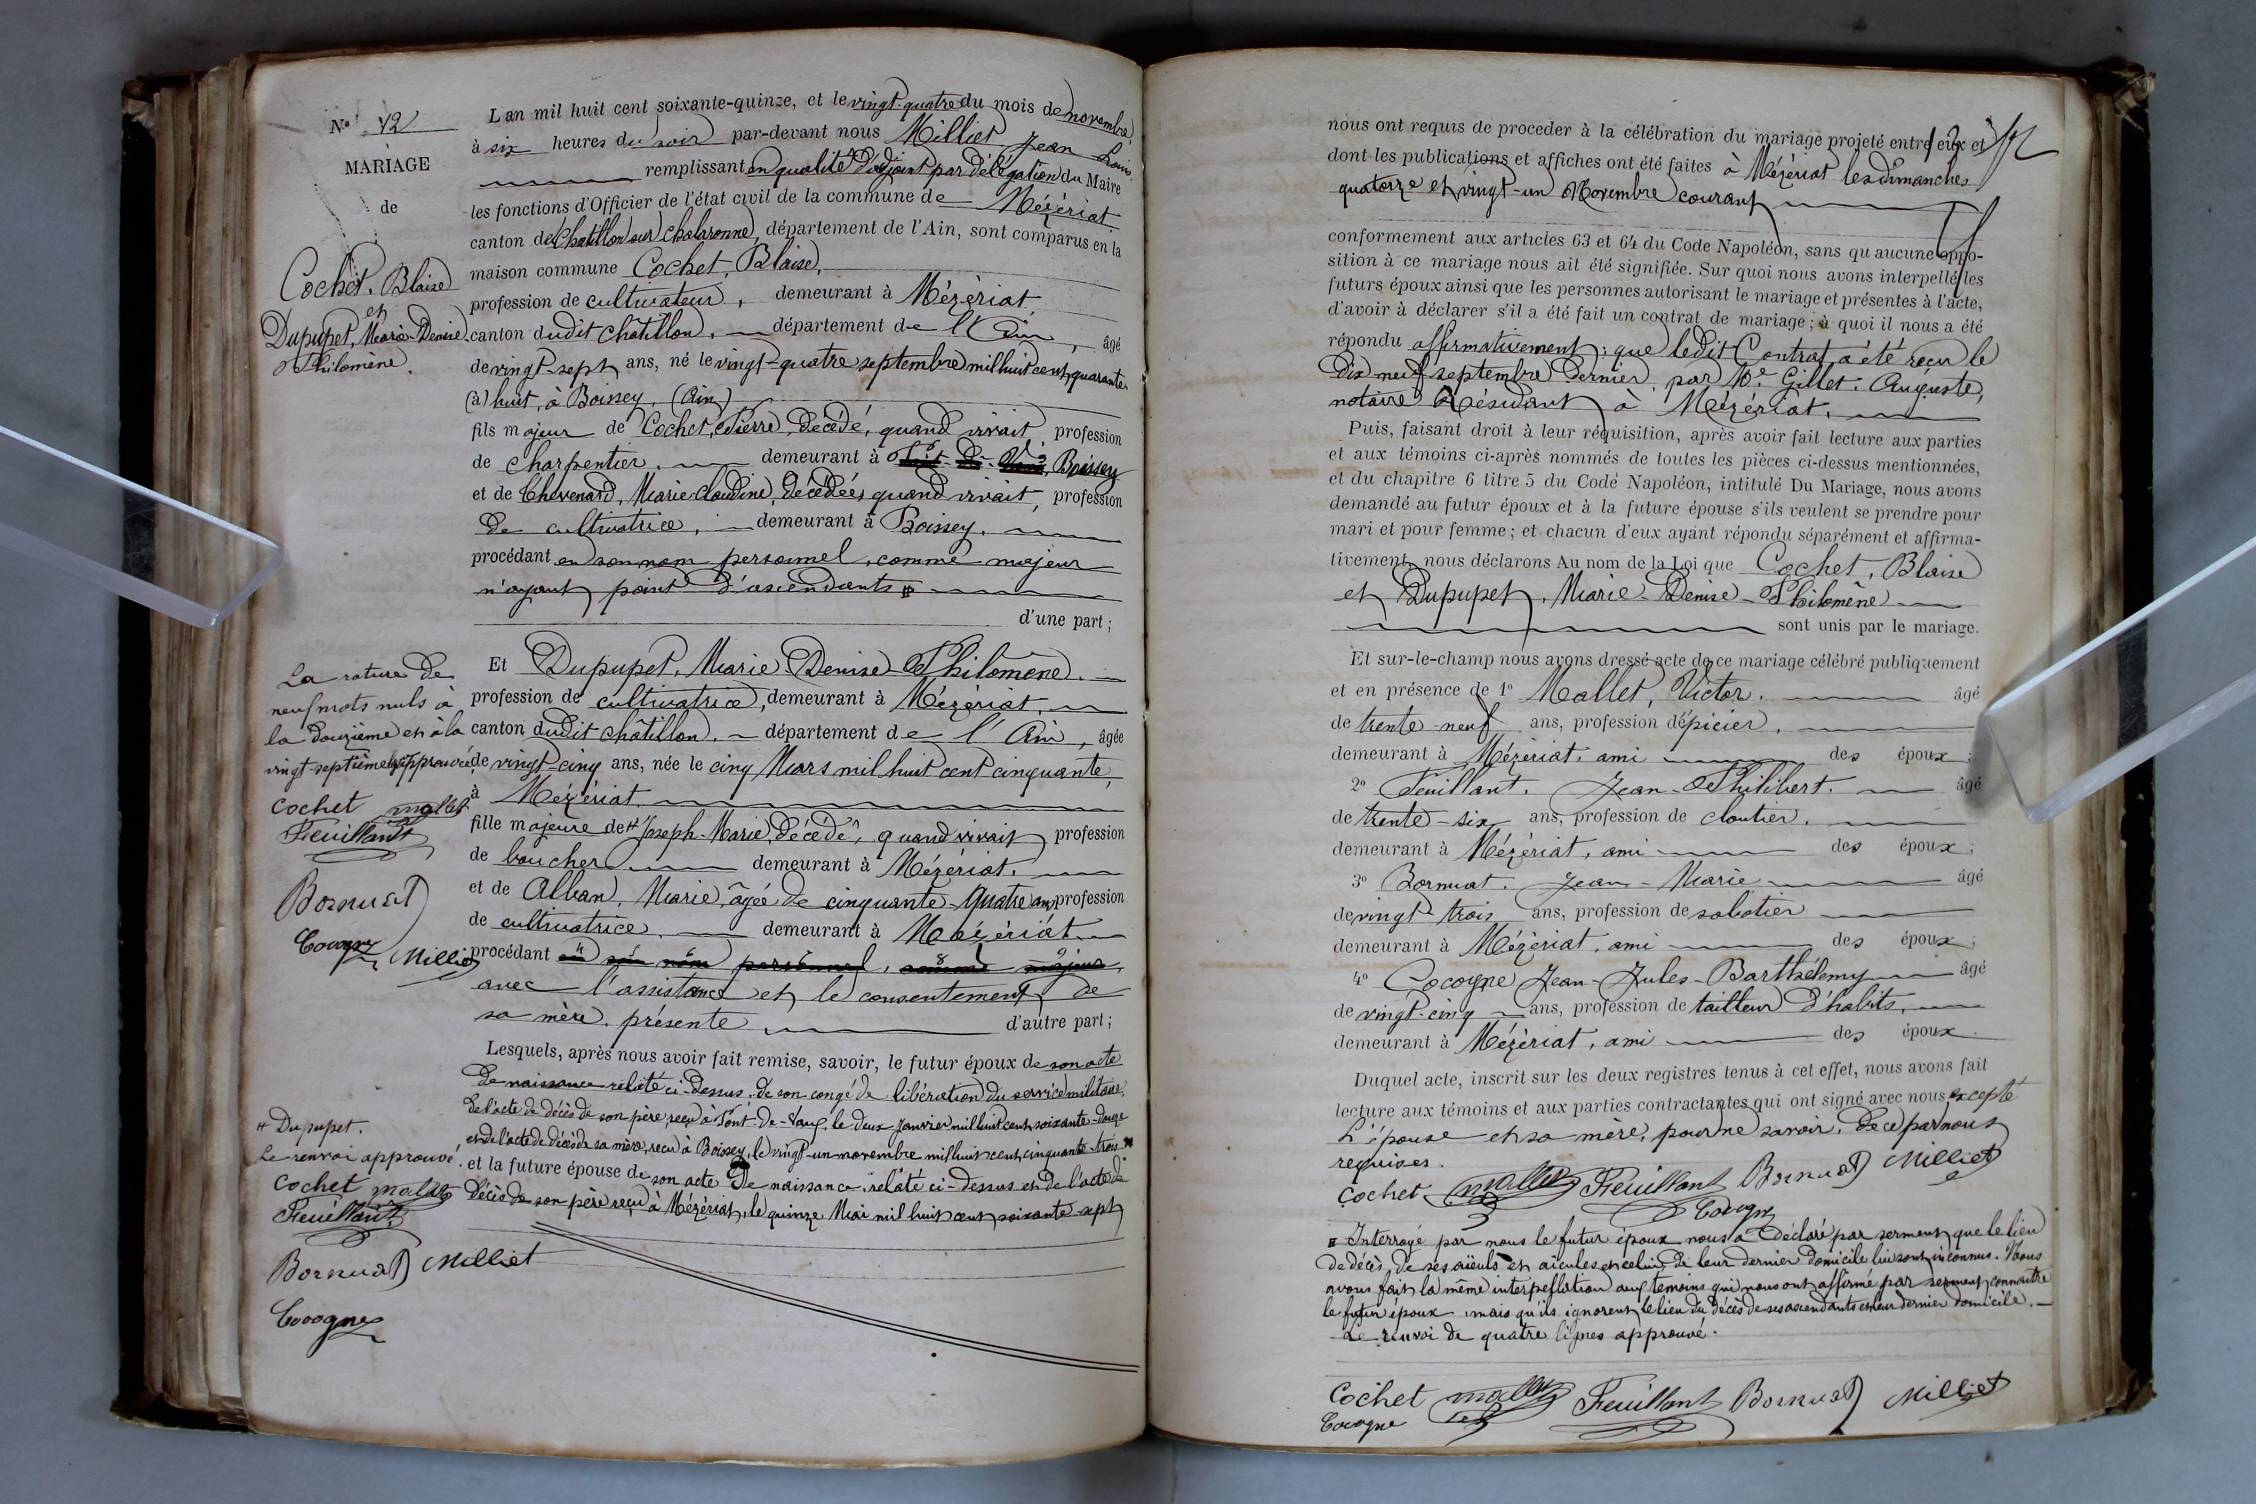 N° 12
MARIAGE
de
Cochet, Blaise
et
Dupupet, Marie-Denise
Philomène.
L'an mil huit cent soixante-quinze, et le vingt-quatre du mois de novembre,
à six heures du soir par-devant nous Milliet Jean Louis
remplissant en qualité d'adjoint par délégation du Maire
les fonctions d'Officier de l'état civil de la commune de Mézériat
canton de Chatillon sur Chalaronne, département de l'Ain, sont comparus en la
maison commune Cochet, Blaise,
profession de cultivateur, demeurant à Mézériat
canton dudit châtillon, département de l'Ain, âgé
de vingt-sept ans, né le vingt-quatre septembre mil huit cent quarante
(à) huit, à Boissey, (Ain)
fils majeur de Cochet, Pierre, décédé, quand vivait, profession
de charpentier, demeurant à Pont-de-Vaux, Boissey
et de Chevenard, Marie Claudine, décédée, quand vivait, profession
de cultivatrice, demeurant à Boissey,
procédant en son nom personnel, comme majeur
n'ayant point d'ascendants #
d'une part;
Et Dupupet, Marie Denise-Philomène,
profession de cultivatrice, demeurant à Mézériat,
canton dudit châtillon, département de l'Ain, âgée
de vingt-cinq ans, née le cinq Mars mil huit cent cinquante,
à Mézériat
fille majeure de # Joseph-Marie, décédé, quand vivait, profession
de boucher demeurant à Mézériat,
et de Alban, Marie, âgée de cinquante-quatre ans, profession
de cultivatrice, demeurant à Mézériat
procédant en son nom personnel, comme majeur,
avec l'assistance et le consentement de
sa mère, présente d'autre part;
Lesquels, après nous avoir fait remise, savoir, le futur époux de son acte
de naissance relaté ci-dessus, de son congé de libération du service militaire,
de l'acte de décès de son père, reçu à Pont-de-Vaux, le deux janvier mil huit cent soixante-douze
et de l'acte de décès de sa mère, reçu à Boissey, le vingt-un novembre mil huit cent cinquante-trois
et la future épouse de son acte de naissance, relaté ci-dessus et de l'acte de
décès de son père reçu à Mézériat, le quinze Mai mil huit cent soixante-sept
La rature de
neuf mots nuls à
la douzième et à la
vingt-septième ligne approuvée
Cochet mallet
Feuillant
Bornuat
Cocogne Milliet
# Dupupet.
Le renvoi approuvé.
Cochet mallet
Feuillant
Bornuat Milliet
Cocogne
nous ont requis de proceder à la célébration du mariage projeté entre eux et
dont les publications et affiches ont été faites à Mézériat les dimanches
quatorze et vingt-un Novembre courant
conformement aux articles 63 et 64 du Code Napoléon, sans qu'aucune oppo-
sition à ce mariage nous ait été signifiée. Sur quoi nous avons interpellé les
futurs époux ainsi que les personnes autorisant le mariage et présentes à l'acte,
d'avoir à déclarer s'il a été fait un contrat de mariage; à quoi il nous a été
répondu affirmativement; que ledit Contrat a été reçu le
Dix neuf septembre dernier, par Me Gillet Auguste,
notaire Résidant à Mézériat,
Puis, faisant droit à leur réquisition, après avoir fait lecture aux parties
et aux témoins ci-après nommés de toutes les pièces ci-dessus mentionnées,
et du chapitre 6 titre 5 du Code Napoléon, intitulé Du Mariage, nous avons
demandé au futur époux et à la future épouse s'ils veulent se prendre pour
mari et pour femme; et chacun d'eux ayant répondu séparément et affirma-
tivement, nous déclarons Au nom de la Loi que Cochet, Blaise
et Dupupet, Marie-Denise-Philomène
sont unis par le mariage.
Et sur-le-champ nous avons dressé acte de ce mariage célébré publiquement
et en présence de 1° Mallet, Victor, âgé
de trente-neuf ans, profession d'épicier,
demeurant à Mézériat, ami des époux;
2° Feuillant, Jean-Philibert. âgé
de trente-six ans, profession de cloutier,
demeurant à Mézériat, ami des époux;
3° Bornuat, Jean-Marie âgé
de vingt-trois ans, profession de sabotier
demeurant à Mézériat, ami des époux;
4° Cocogne Jean-Jules-Barthélemy âgé
de vingt-cinq ans, profession de tailleur d'habits,
demeurant à Mézériat, ami des époux.
Duquel acte, inscrit sur les deux registres tenus à cet effet, nous avons fait
lecture aux témoins et aux parties contractantes qui ont signé avec nous excepté
L'épouse et sa mère, pour ne savoir, de ce par nous
requises.
Cochet mallet Feuillant Bornuat Milliet
Cocogne
# Interrogé par nous le futur époux nous a déclaré par serment que le lieu
de décès de ses aïeuls et aïeules et celui de leur dernier domicile lui sont inconnus. Nous
avons fait la même interpellation aux témoins qui nous ont affirmé par serment connaître
le futur époux, mais qu'ils ignorent le lieu du décès de ses ascendants et leur dernier domicile.
Le renvoi de quatre lignes approuvé.
Cochet mallet Feuillant Bornuat Milliet
Cocogne